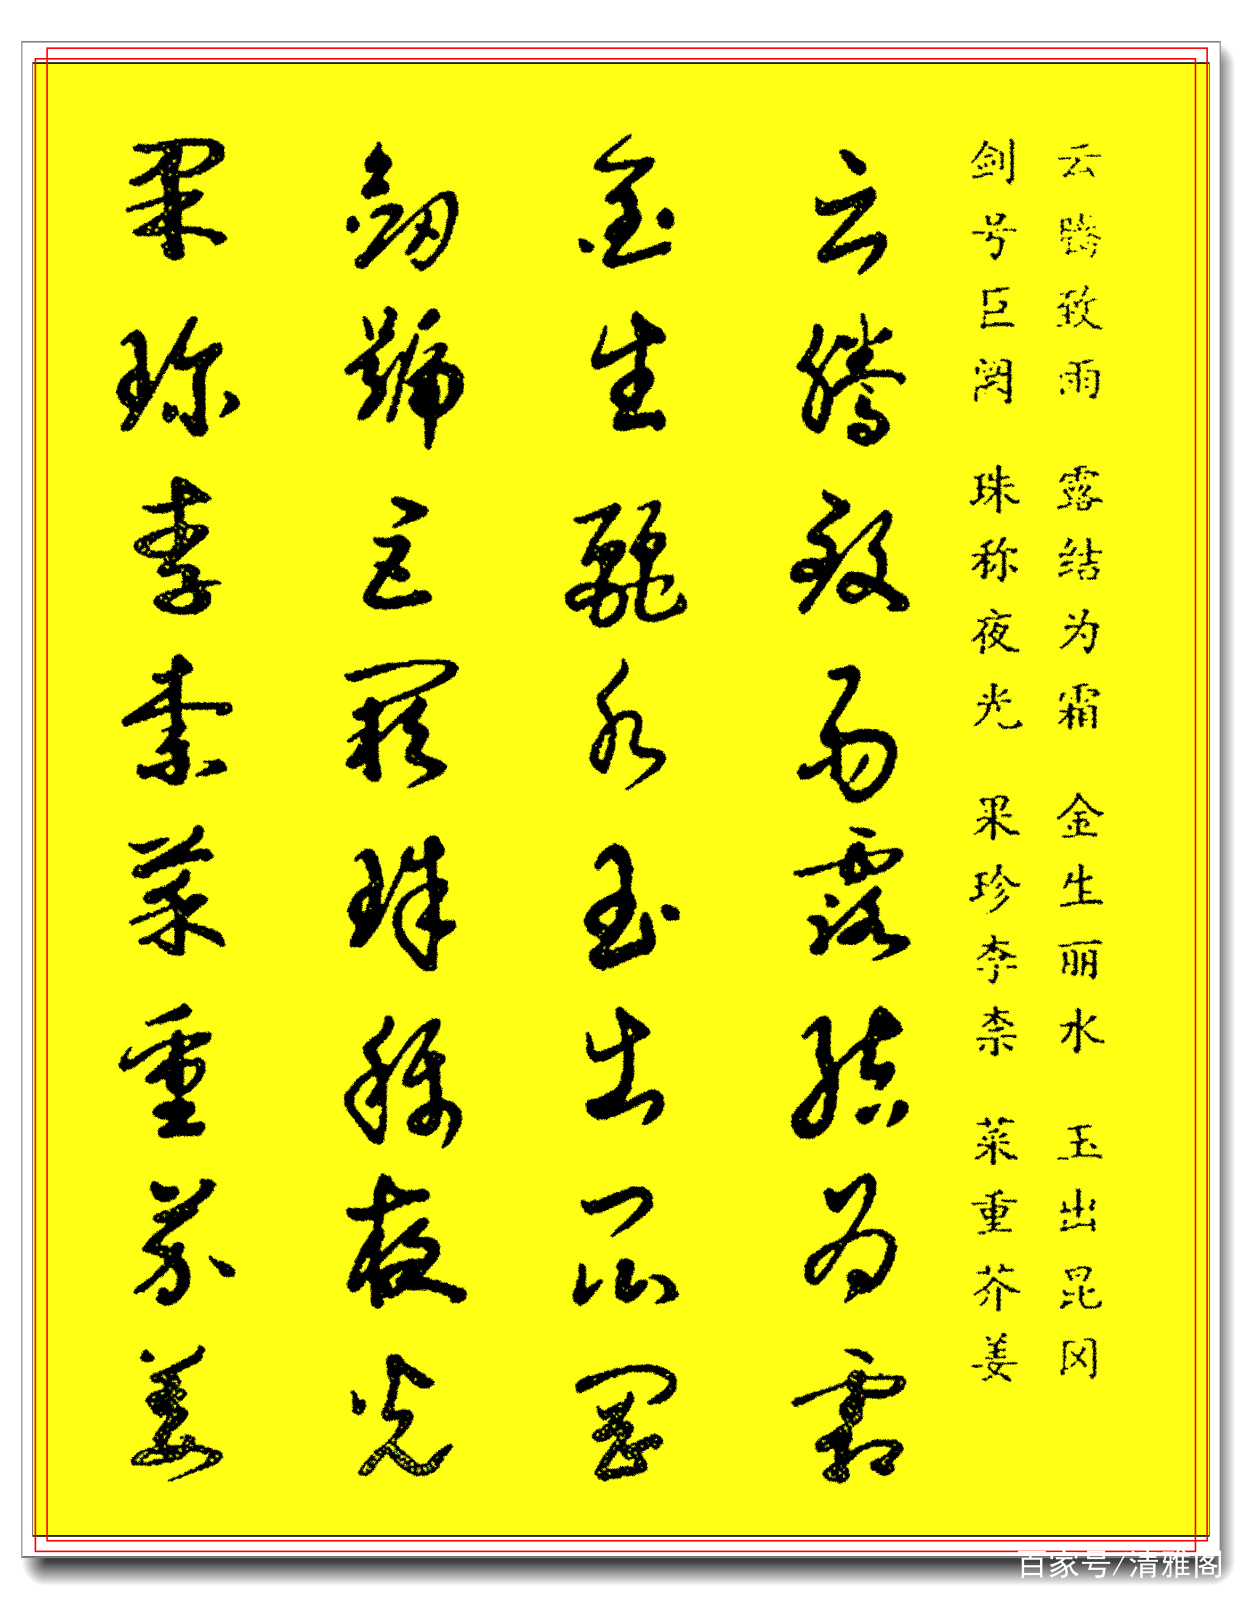 云腾致雨 露结为霜 金生丽水 玉出昆冈
剑号巨阙 珠称夜光 果珍李柰 菜重芥姜
云腾致雨露结为霜
金生丽水玉出昆冈
剑号巨阙珠称夜光
果珍李柰菜重芥姜
百家号/清雅阁